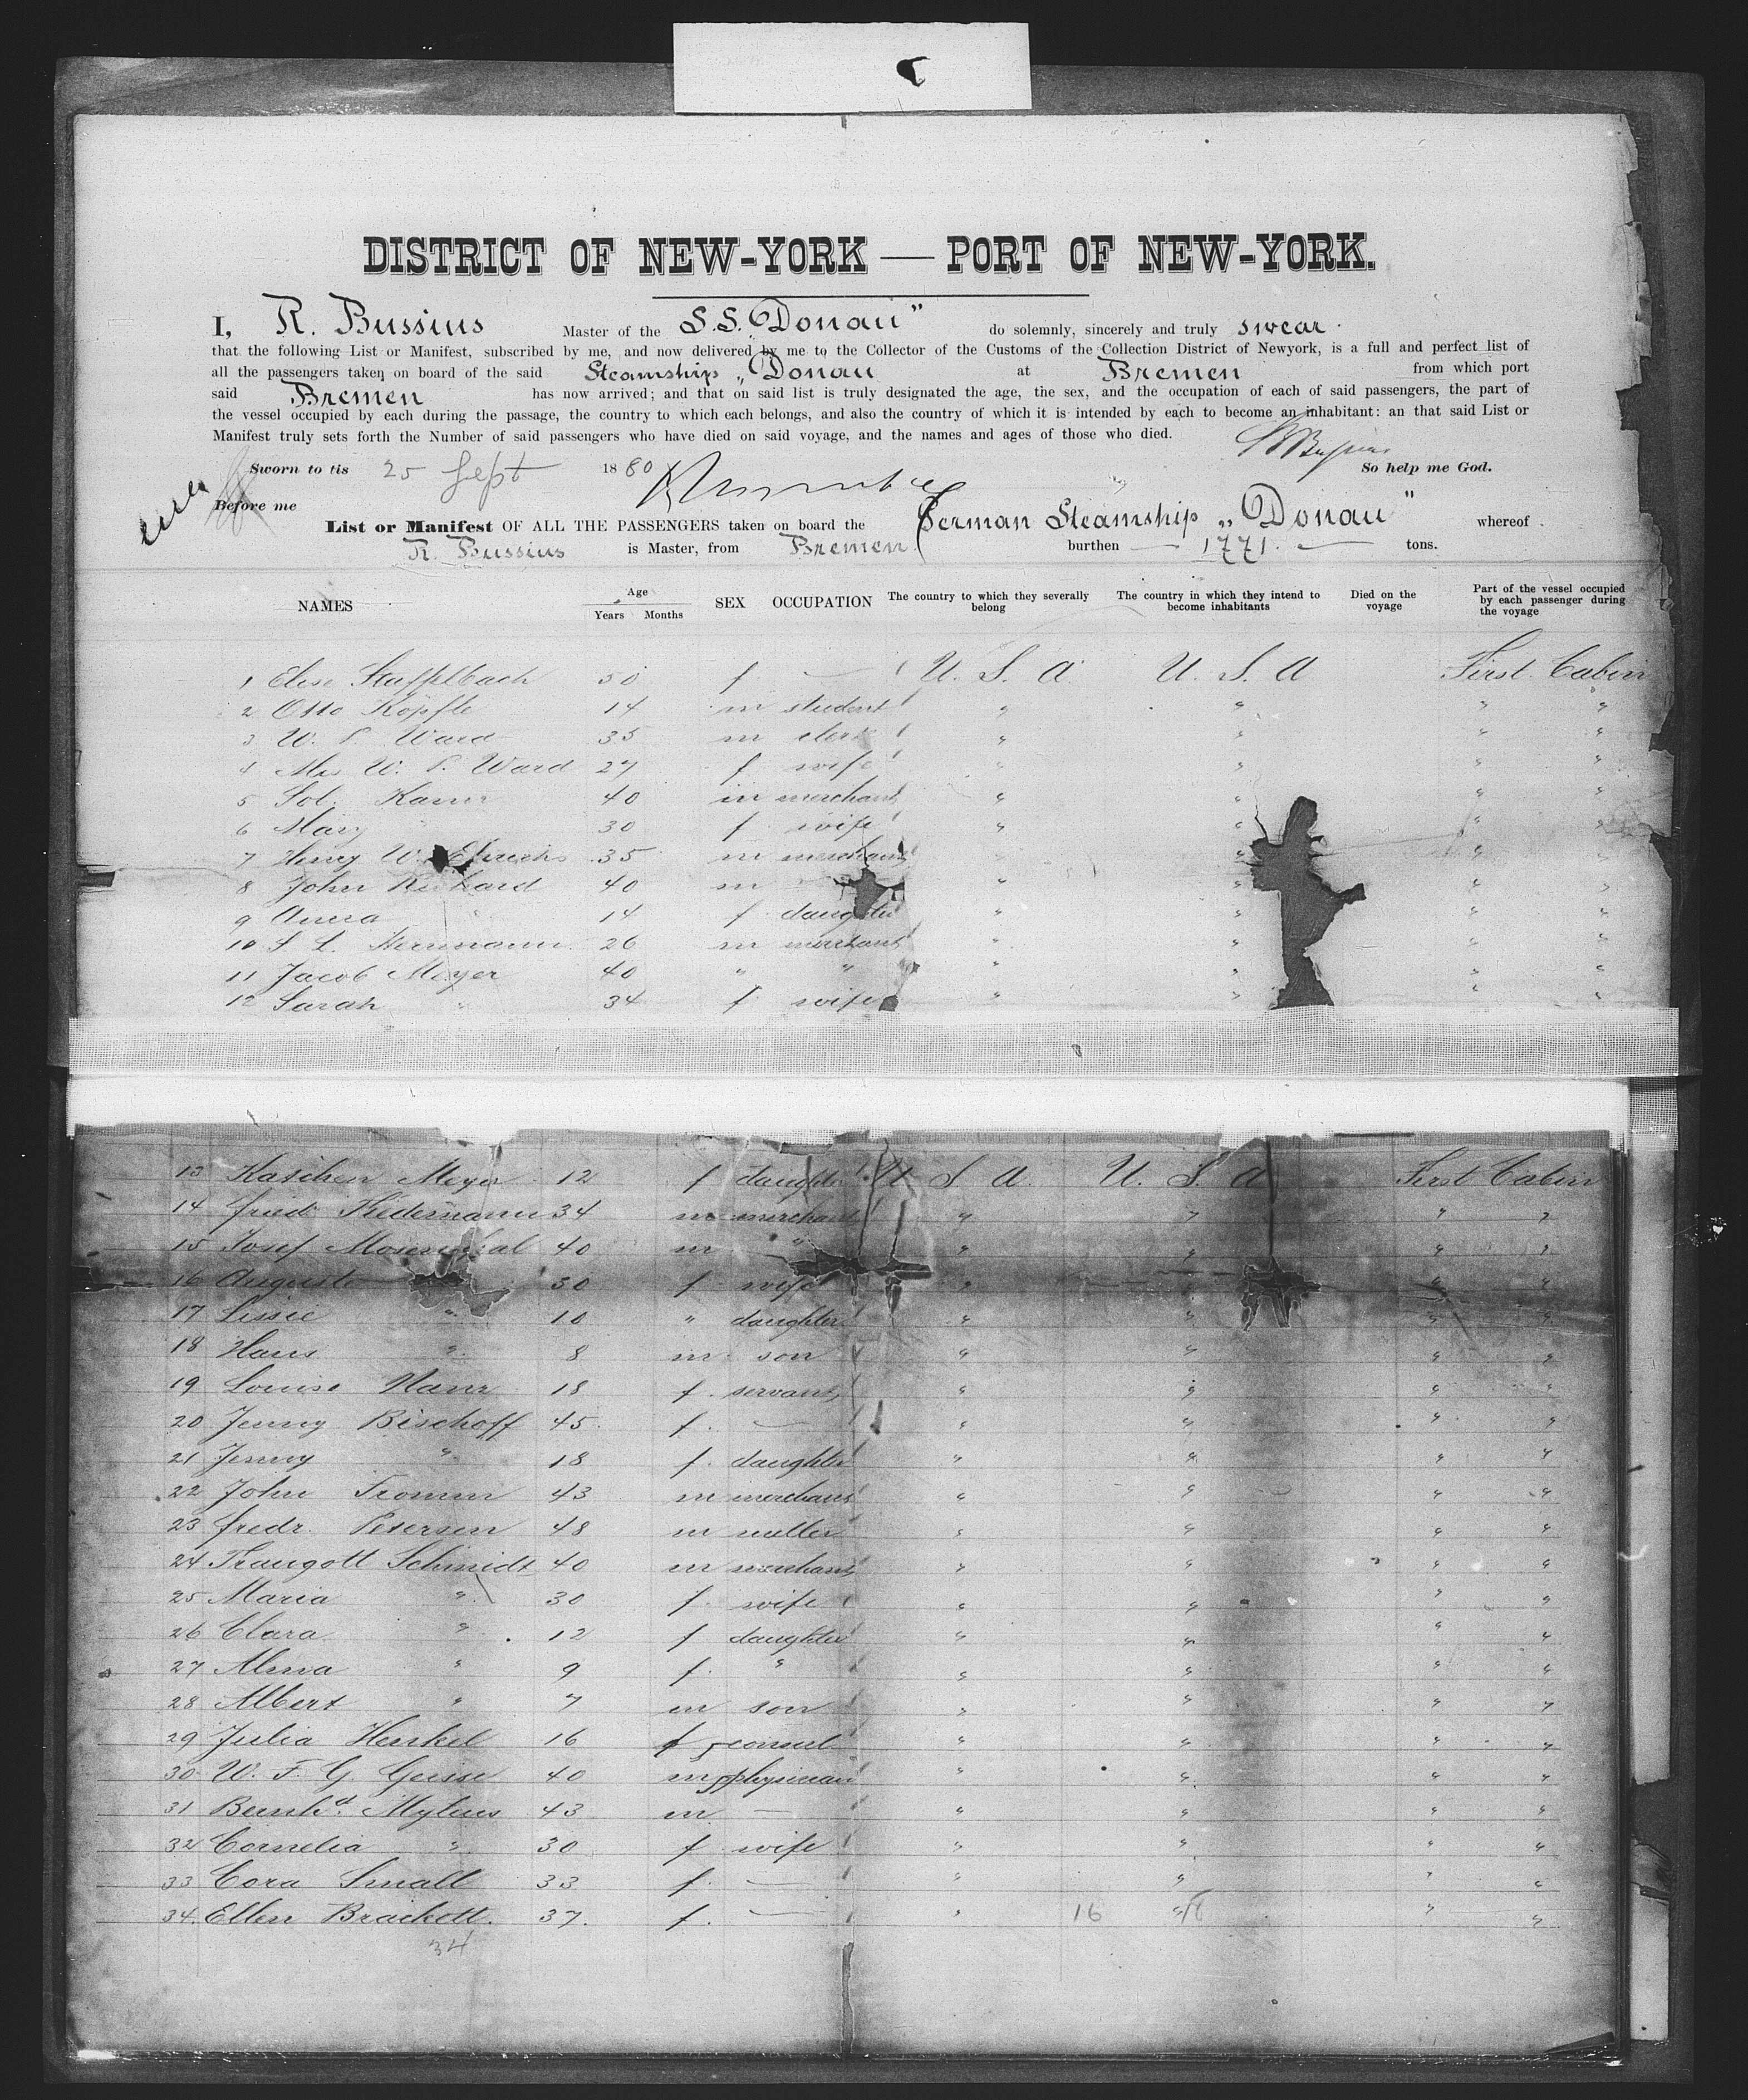 DISTRICT OF NEW-YORK — PORT OF NEW-YORK.
I, R. Bussius Master of the S.S. „Donau" do solemnly, sincerely and truly swear
that the following List or Manifest, subscribed by me, and now delivered by me to the Collector of the Customs of the Collection District of Newyork, is a full and perfect list of
all the passengers taken on board of the said Steamship „Donau at Bremen from which port
said Bremen has now arrived; and that on said list is truly designated the age, the sex, and the occupation of each of said passengers, the part of
the vessel occupied by each during the passage, the country to which each belongs, and also the country of which it is intended by each to become an inhabitant: an that said List or
Manifest truly sets forth the Number of said passengers who have died on said voyage, and the names and ages of those who died.
Sworn to tis 25 Sept 1880 So help me God.
Before me
List or Manifest OF ALL THE PASSENGERS taken on board the German Steamship „Donau" whereof
R. Bussius is Master, from Bremen burthen — 1771. — tons.
NAMES Age Years Months SEX OCCUPATION The country to which they severally belong The country in which they intend to become inhabitants Died on the voyage Part of the vessel occupied by each passenger during the voyage
1 Elise Stapfelbach 50 f — U. S. A. U. S. A First Cabin
2 Otto Köpfle 14 m student " " " "
3 W. P. Ward 35 m clerk " " " "
4 Mrs W. P. Ward 27 f wife " " " "
5 Sol. 40 m merchant " " " "
6 Mary " 30 f wife " " " "
7 Henry W. 35 m merchant " " " "
8 John 40 m " " " "
9 Anna " 14 f daughter " " " "
10 S. L. Herrmann 26 m merchant " " " "
11 Jacob Meyer 40 " " " " " "
12 Sarah " 34 f wife " " " "
13 Kaschen Meyer 12 f daughter U. S. A. U. S. A First Cabin
14 friedr. Tiedemann 34 m merchant " " " "
15 Josef Mosenthal 40 m " " " " "
16 Auguste 30 f wife " " " "
17 Lissie " 10 " daughter " " " "
18 Hans " 8 m son " " " "
19 Louise 18 f. servant " " " "
20 Jenny Bischoff 45. f. — " " " "
21 Jenny " 18 f. daughter " " " "
22 John Fromm 43 m merchant " " " "
23 fredr. Petersen 48 m miller " " " "
24 Traugott Schmidt 40 m merchant " " " "
25 Maria " 30 f. wife " " " "
26 Clara " 12 f daughter " " " "
27 Alma " 9 f. " " " " "
28 Albert " 7 m son " " " "
29 Julia Henkel 16 f " " " "
30 W. F. G. Geisse 40 m physician " " " "
31 Bernhd. Mylius 43 m — " " " "
32 Cornelia " 30 f wife " " " "
33 Cora Small 33 f. — " " " "
34. Ellen Brackett. 37. f. — " 16 " 18 " "
34